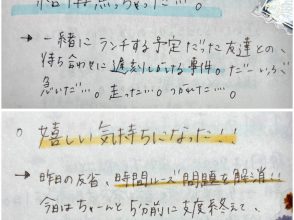 → 一緒に ランチする予定だった友達との、
待ち合わせに遅刻しかける事件。だーいぶ
急いだ…。走った…。つかれた…。
○ 嬉しい気持ちになった!!
→ 昨日の反省、時間ルーズ問題を解消!!
今日はちゃーんと5分前に支度を終えて、